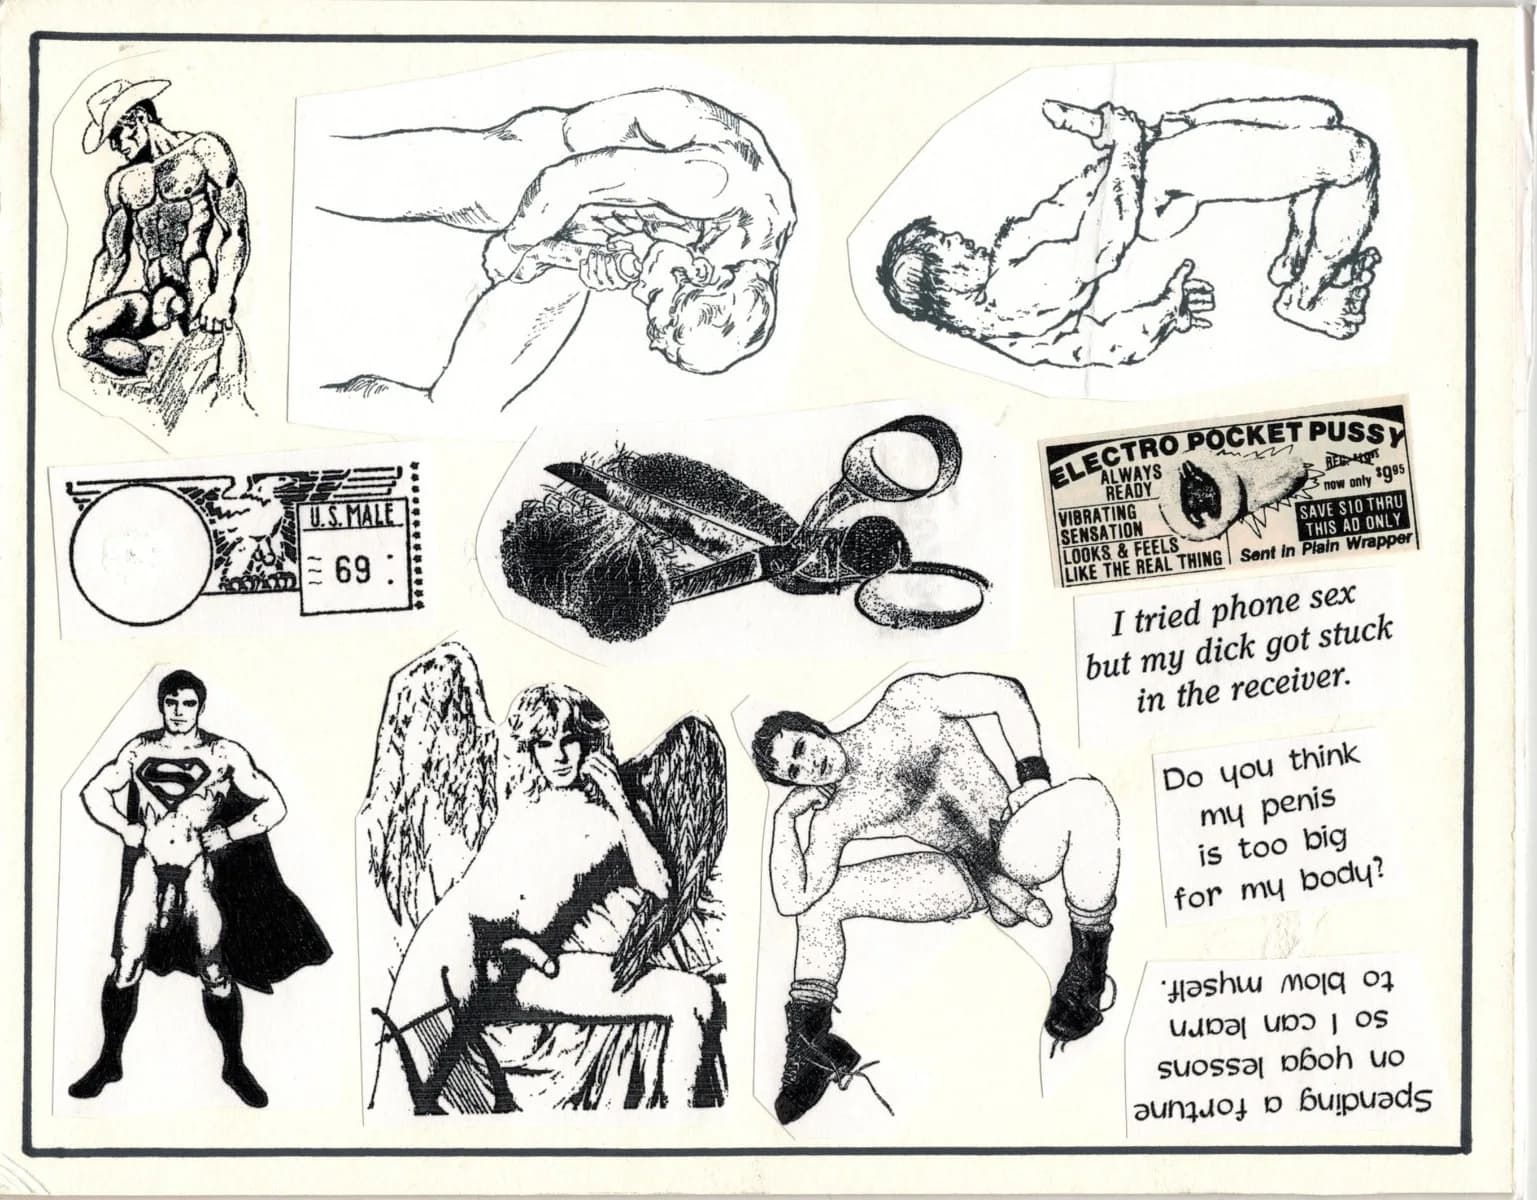 U.S. MALE
69
ELECTRO POCKET PUSSY
ALWAYS
READY
VIBRATING
SENSATION
LOOKS & FEELS
LIKE THE REAL THING
now only $9.95
SAVE $10 THRU
THIS AD ONLY
Sent in Plain Wrapper
I tried phone sex
but my dick got stuck
in the receiver.
Do you think
my penis
is too big
for my body?
Spending a fortune
on yoga lessons
so I can learn
to blow myself.